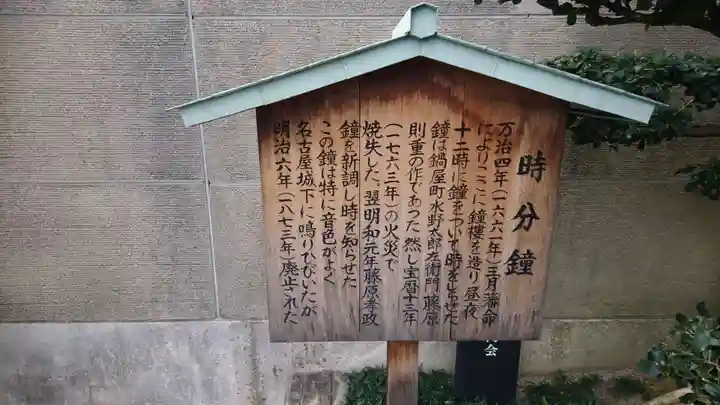 時分鐘
万治四年(一六六一年)三月藩命
によりここに鐘樓を造り昼夜
十二時に鐘をついて時をしらせた
鐘は鍋屋町水野太郎左衛門藤原
則重の作であった 然し宝暦十三年
(一七六三年)の火災で
焼失した 翌明和元年藤原孝政
鐘を新調し時を知らせた
この鐘は特に音色がよく
名古屋城下に鳴りひびいたが
明治六年(一八七三年)廃止された
会